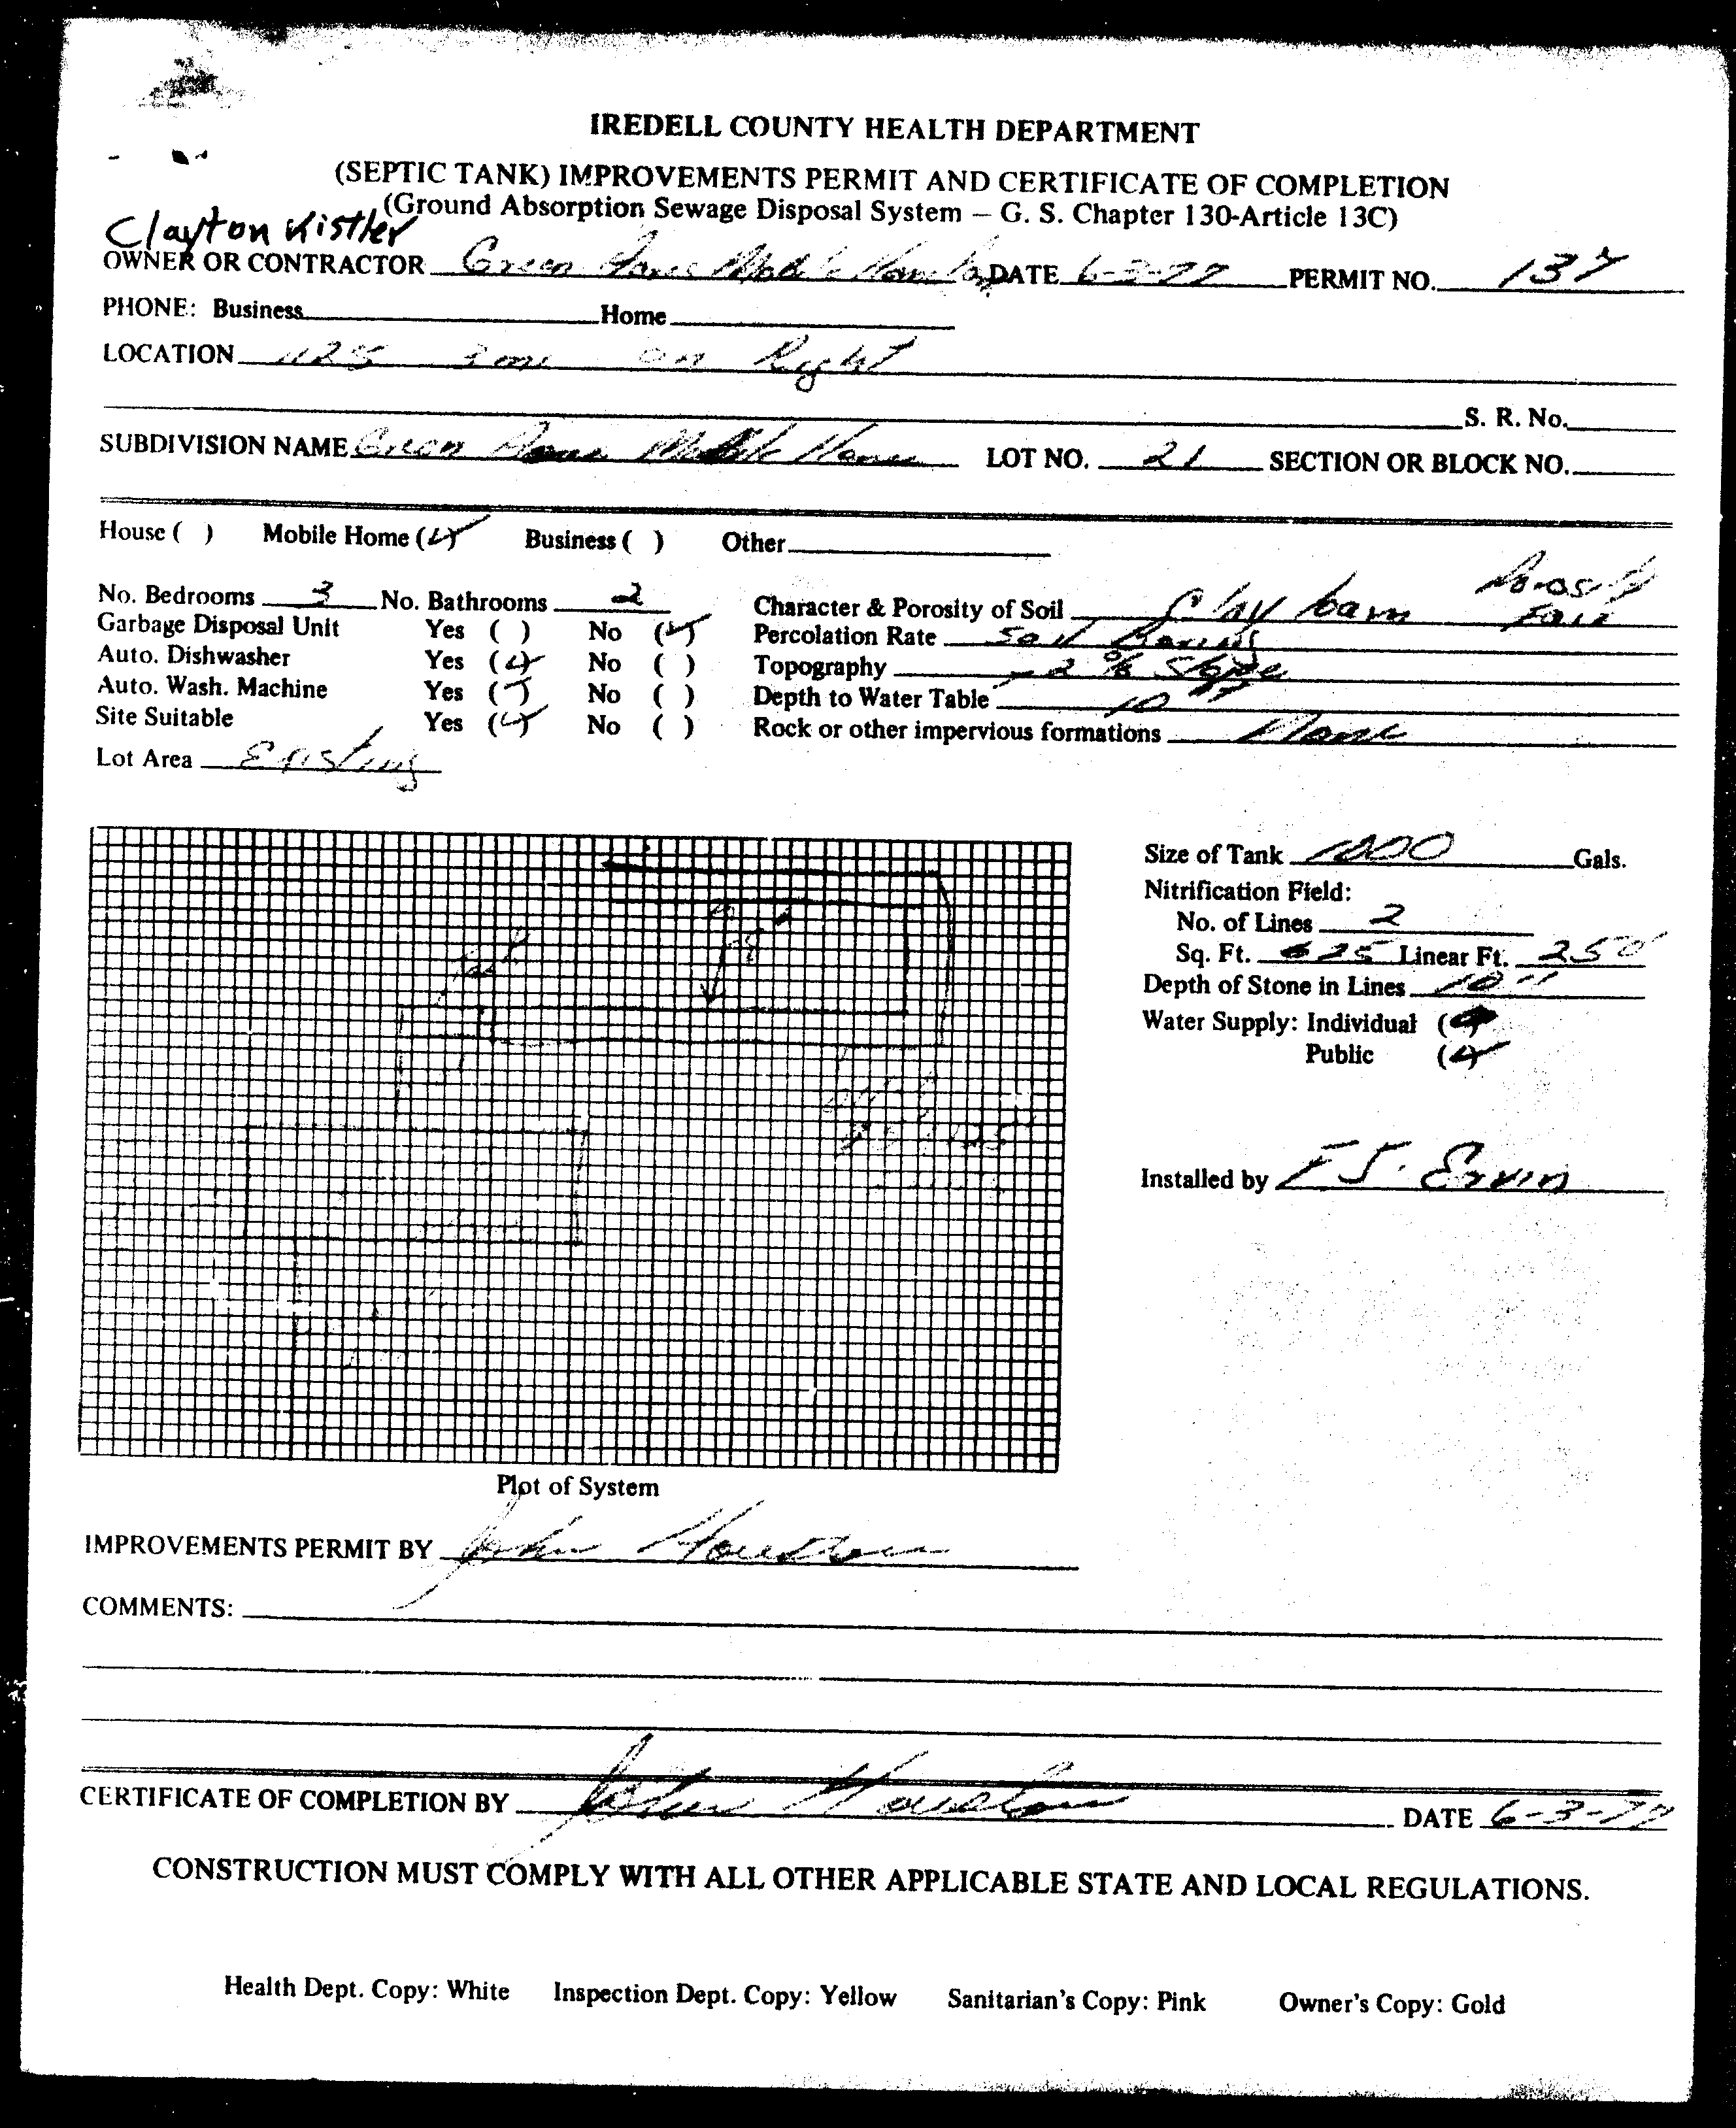 IREDELL COUNTY HEALTH DEPARTMENT
(SEPTIC TANK) IMPROVEMENTS PERMIT AND CERTIFICATE OF COMPLETION
(Ground Absorption Sewage Disposal System – G. S. Chapter 130-Article 13C)
Clayton Kistler
OWNER OR CONTRACTOR Green Mobile Home DATE 6-3-77 PERMIT NO. 137
PHONE: Business Home
LOCATION on Right
S. R. No.
SUBDIVISION NAME Green Mobile Home LOT NO. 21 SECTION OR BLOCK NO.
House ( ) Mobile Home (✓) Business ( ) Other
Porosity
No. Bedrooms 3 No. Bathrooms 2 Character & Porosity of Soil Clay loam Fair
Garbage Disposal Unit Yes ( ) No (✓) Percolation Rate Soil Boring
Auto. Dishwasher Yes (✓) No ( ) Topography 2 % Slope
Auto. Wash. Machine Yes (✓) No ( ) Depth to Water Table 10 FT
Site Suitable Yes (✓) No ( ) Rock or other impervious formations None
Lot Area Existing
Size of Tank 1000 Gals.
Nitrification Field:
No. of Lines 2
Sq. Ft. 625 Linear Ft. 250'
Depth of Stone in Lines 10"
Water Supply: Individual ( )
Public (✓)
Installed by F J. Ervin
Plot of System
IMPROVEMENTS PERMIT BY John Houston
COMMENTS:
CERTIFICATE OF COMPLETION BY John Houston DATE 6-3-77
CONSTRUCTION MUST COMPLY WITH ALL OTHER APPLICABLE STATE AND LOCAL REGULATIONS.
Health Dept. Copy: White Inspection Dept. Copy: Yellow Sanitarian's Copy: Pink Owner's Copy: Gold